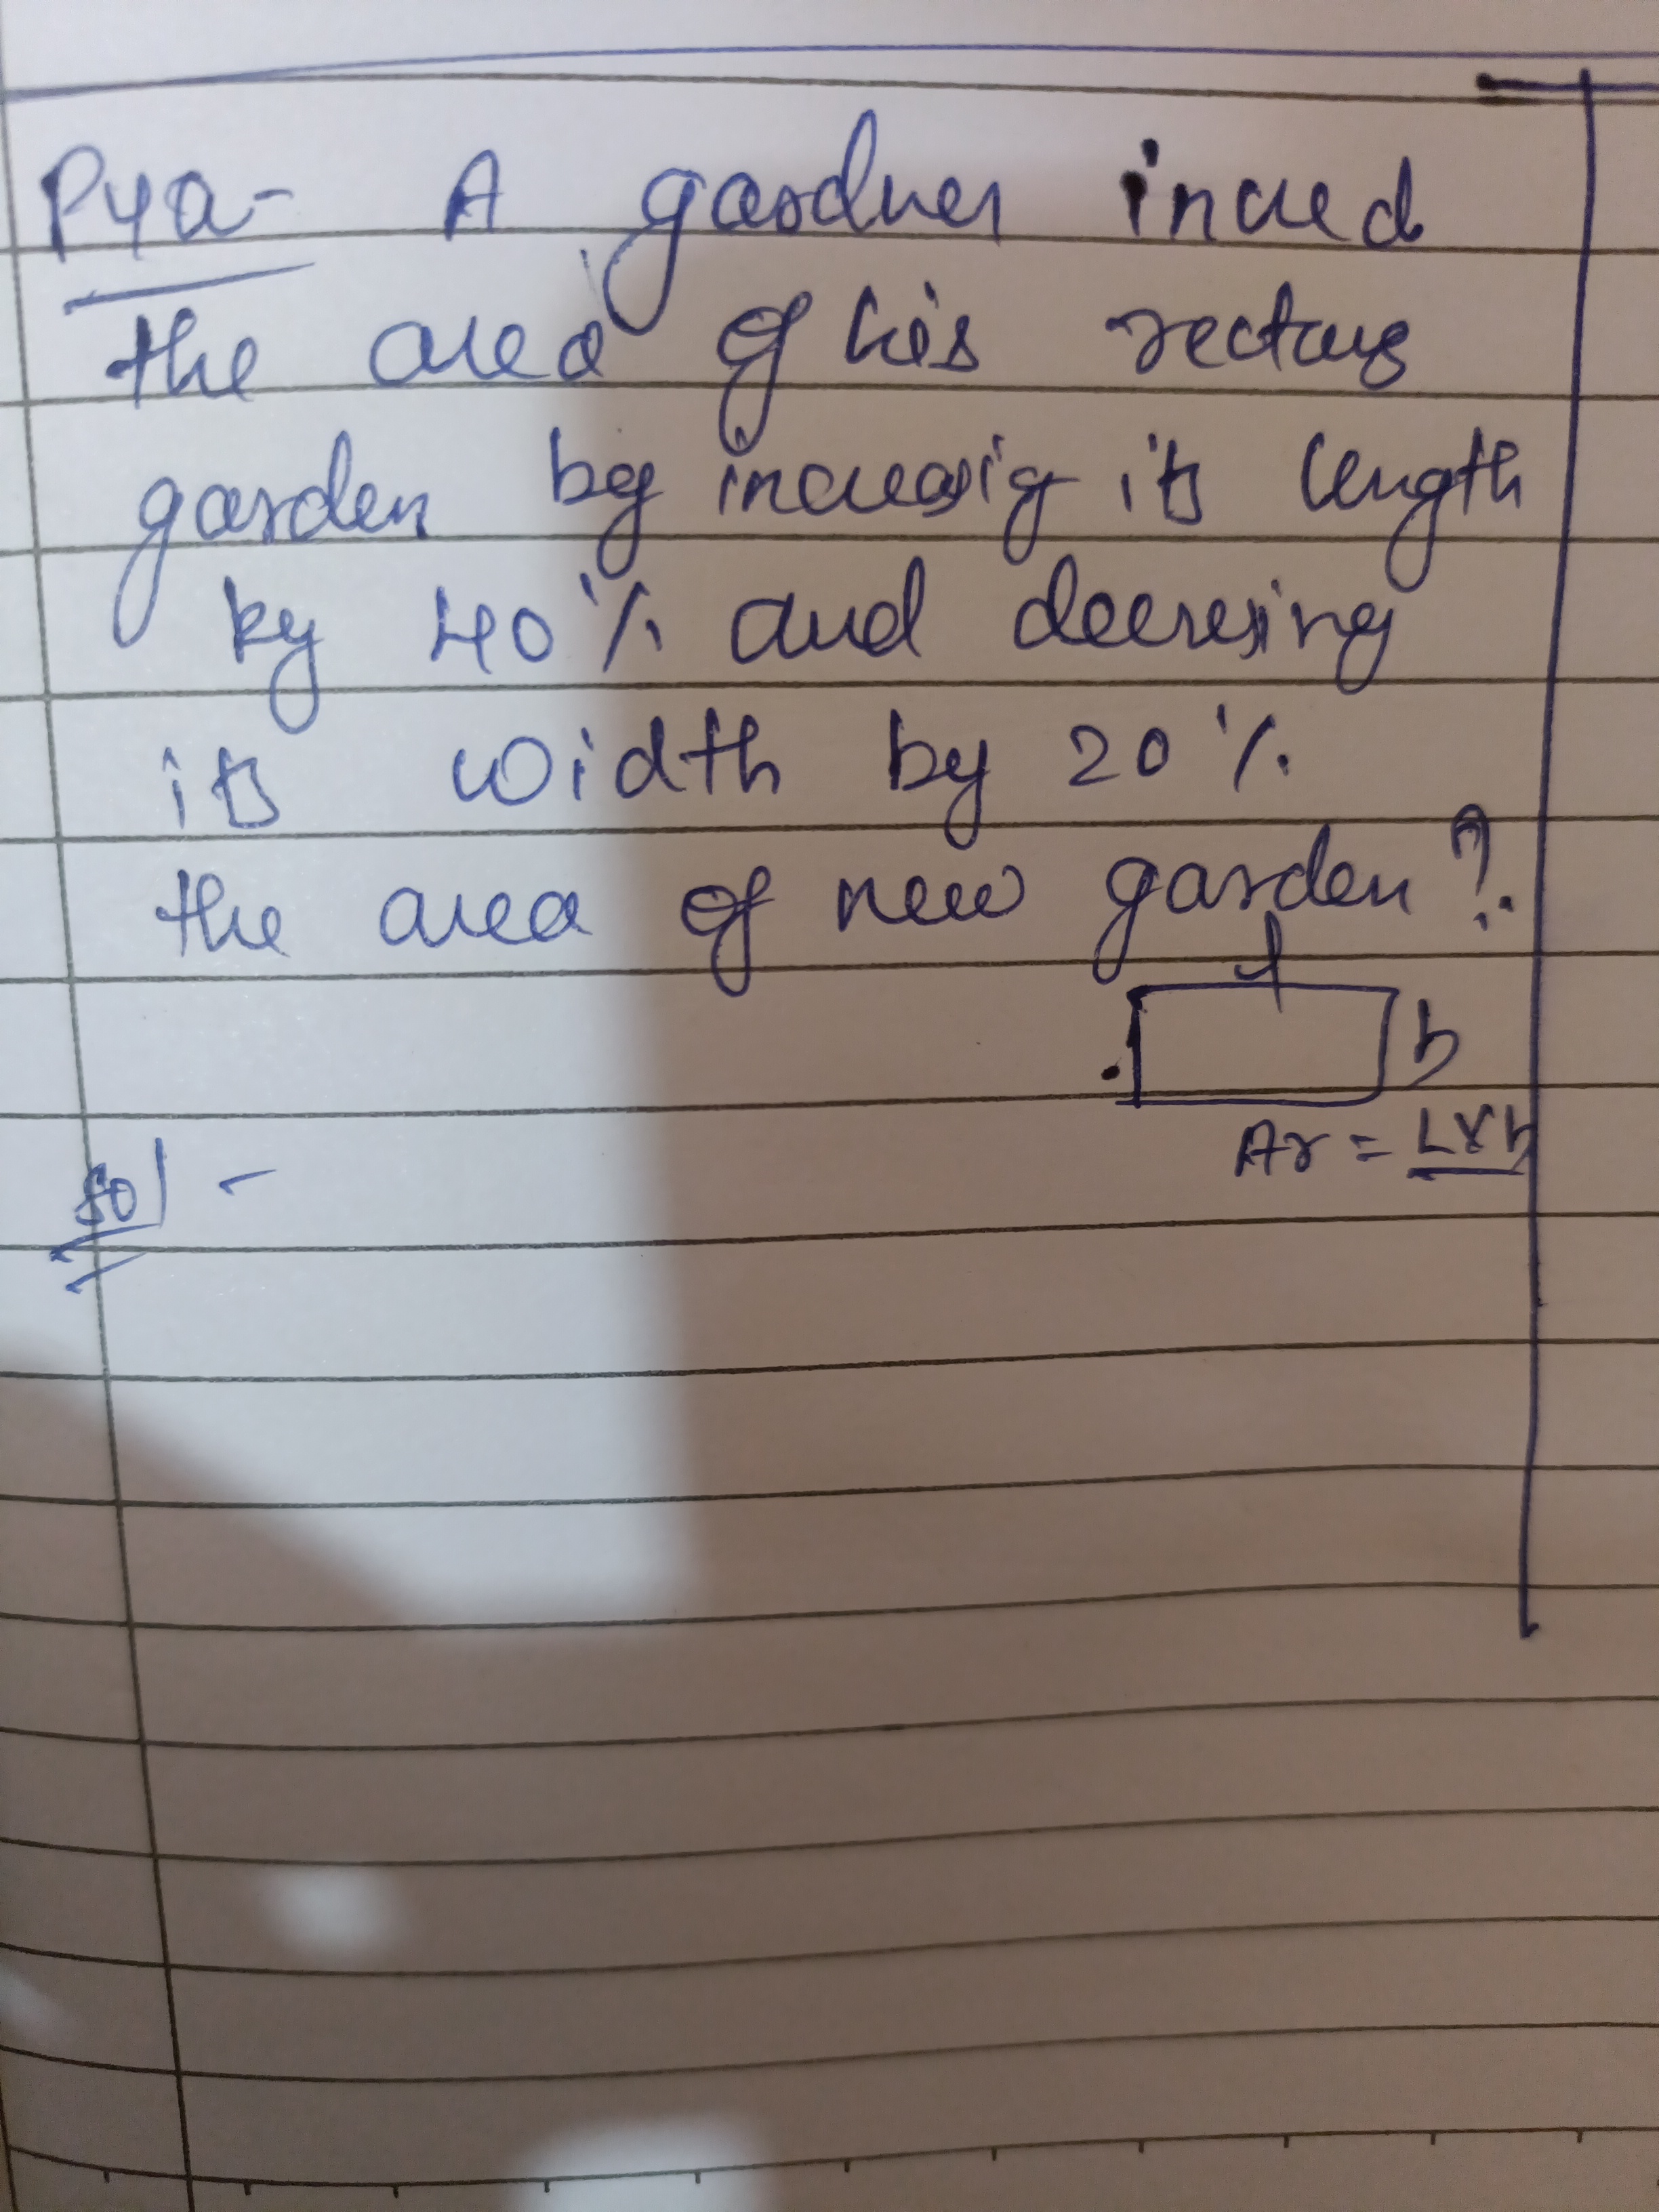 PYQ- A gardner incred
the area of his rectang
garden by increasig its length
by 40% and decresing
its width by 20%.
the area of new garden?
l
b
Ar = L×b
Sol -